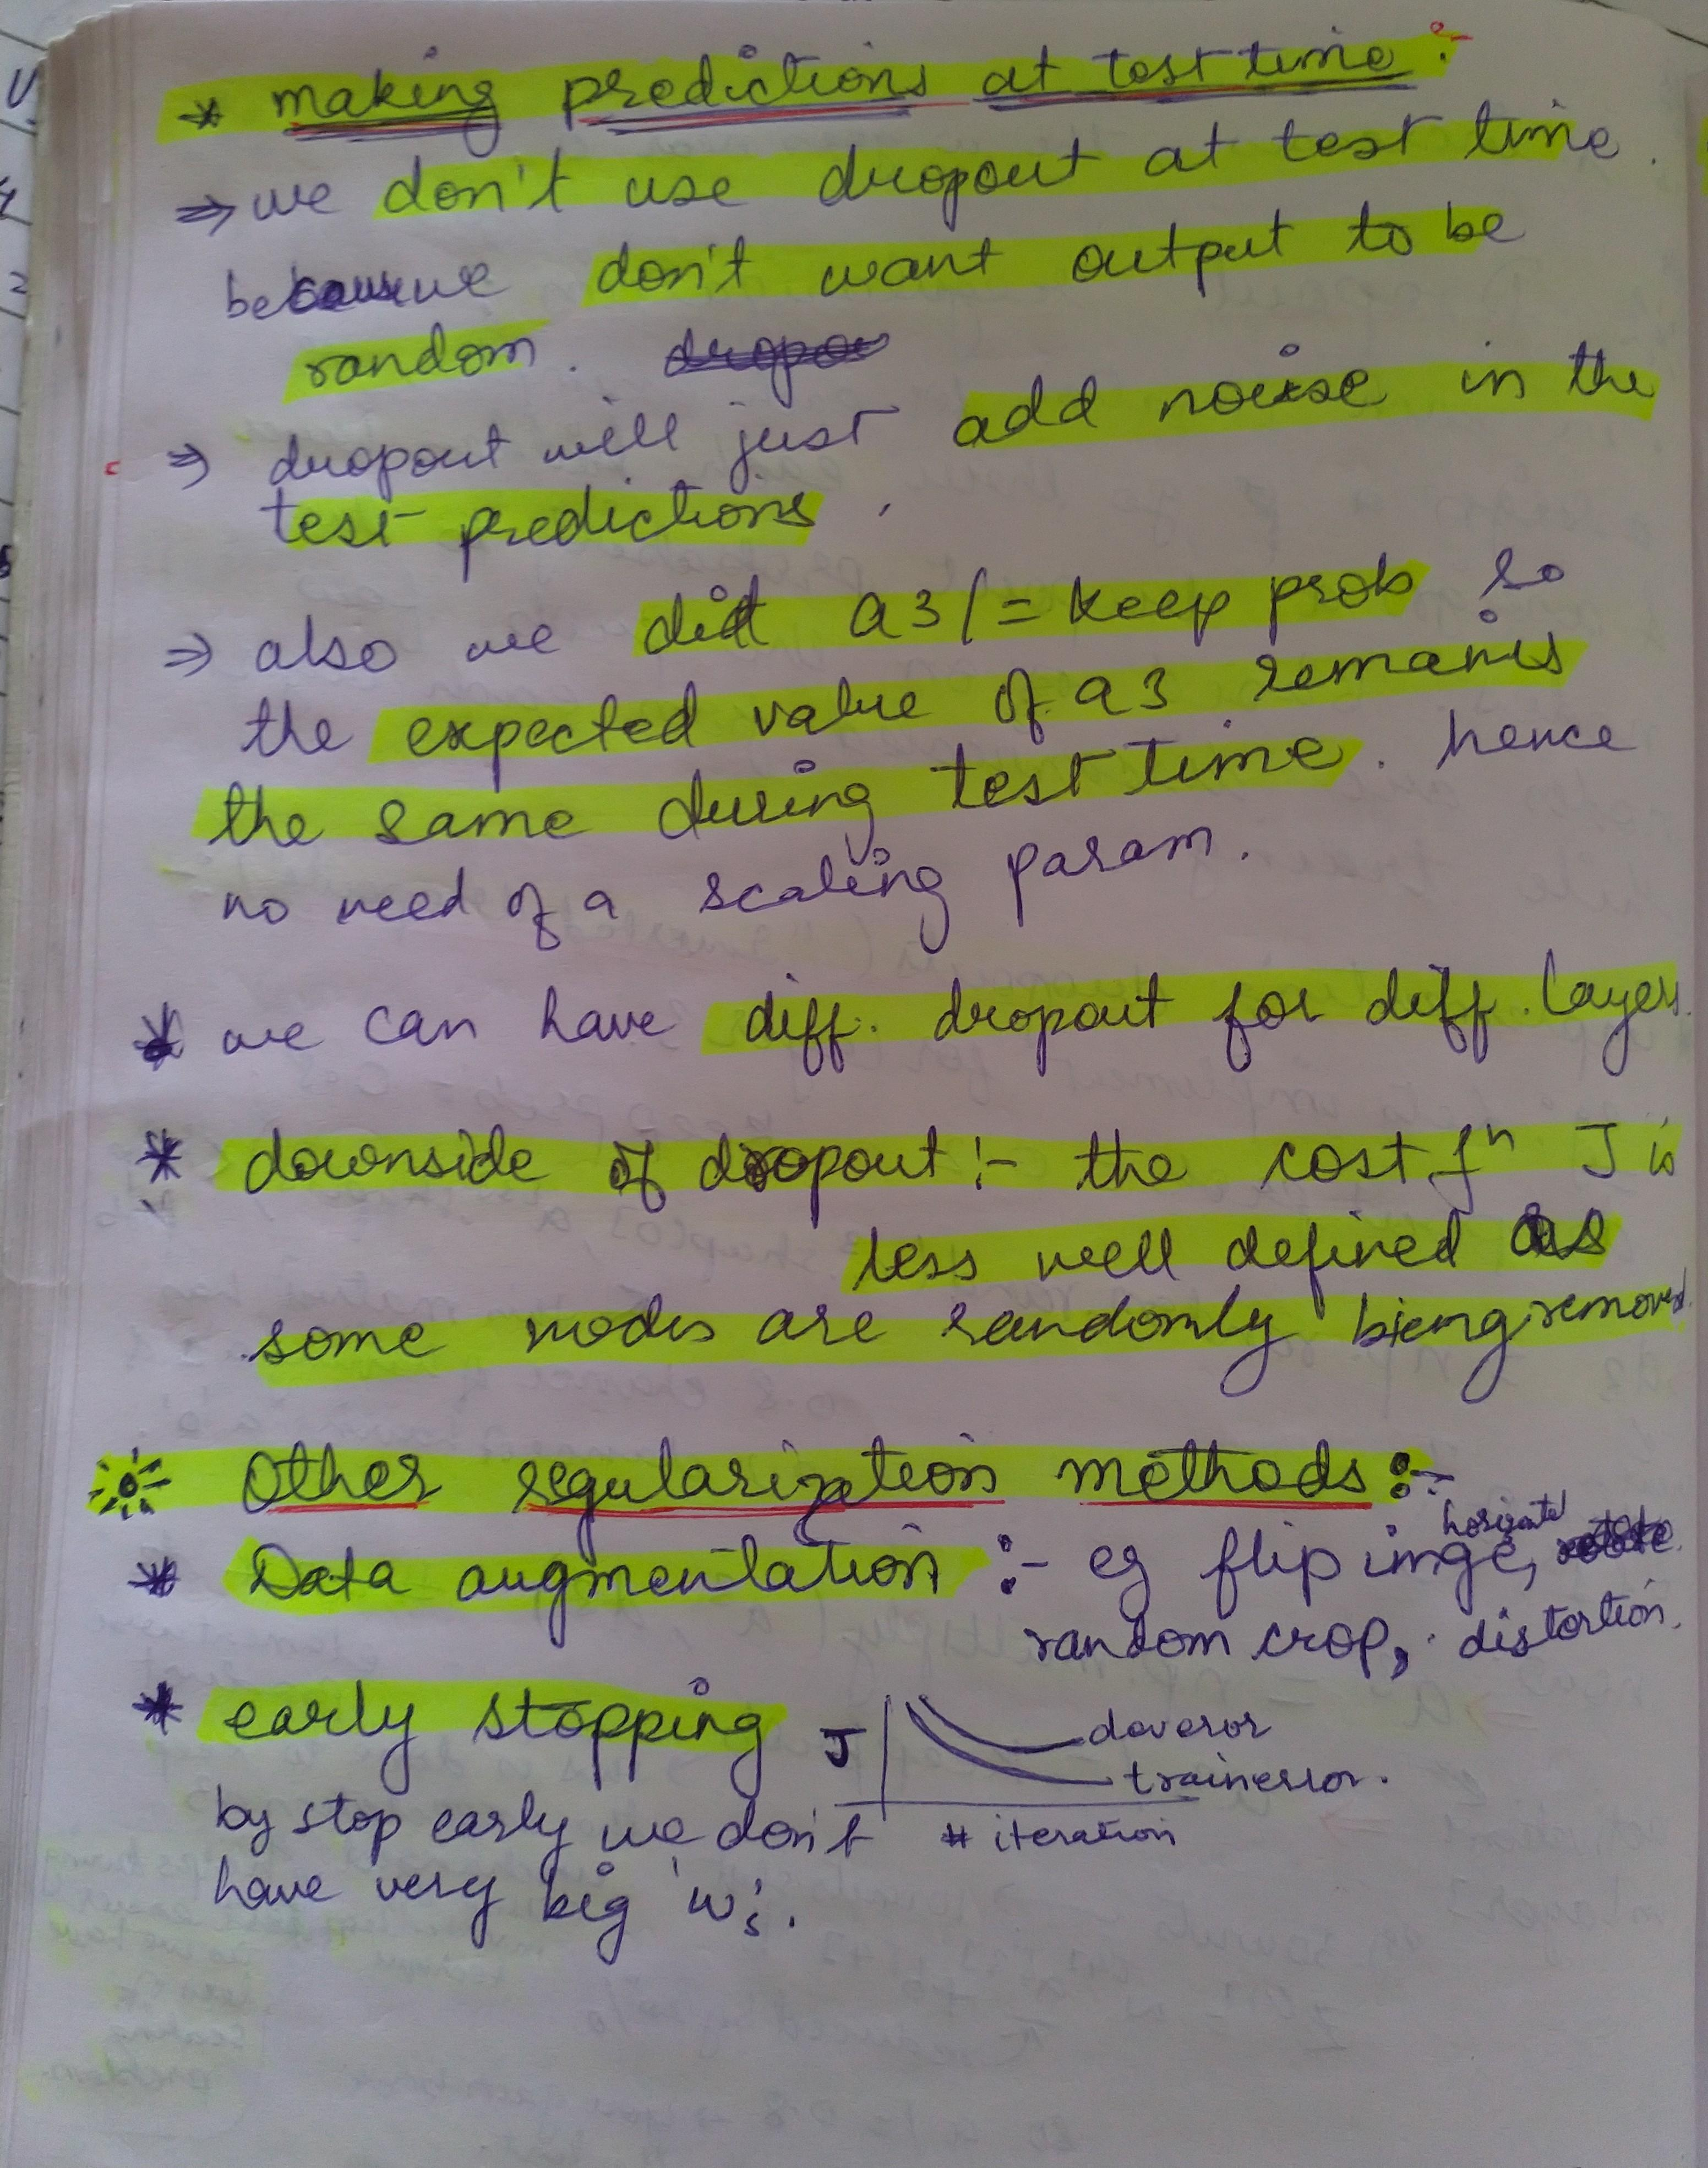 * making predictions at test time :-
⇒ we don't use dropout at test time.
because we don't want output to be
random.
⇒ dropout will just add noise in the
test predictions.
⇒ also we did a3 /= keep prob so
the expected value of a3 remains
the same during test time. hence
no need of a scaling param.
* we can have diff. dropout for diff. layers.
* downside of dropout :- the cost fⁿ J is
less well defined as
some nodes are randomly being removed.
* Other regularization methods :-
* Data augmentation :- eg flip imge, horizontal
random crop, distortion.
* early stopping
J
dev eror
train error.
# iteration
by stop early we don't
have very big 'w's.